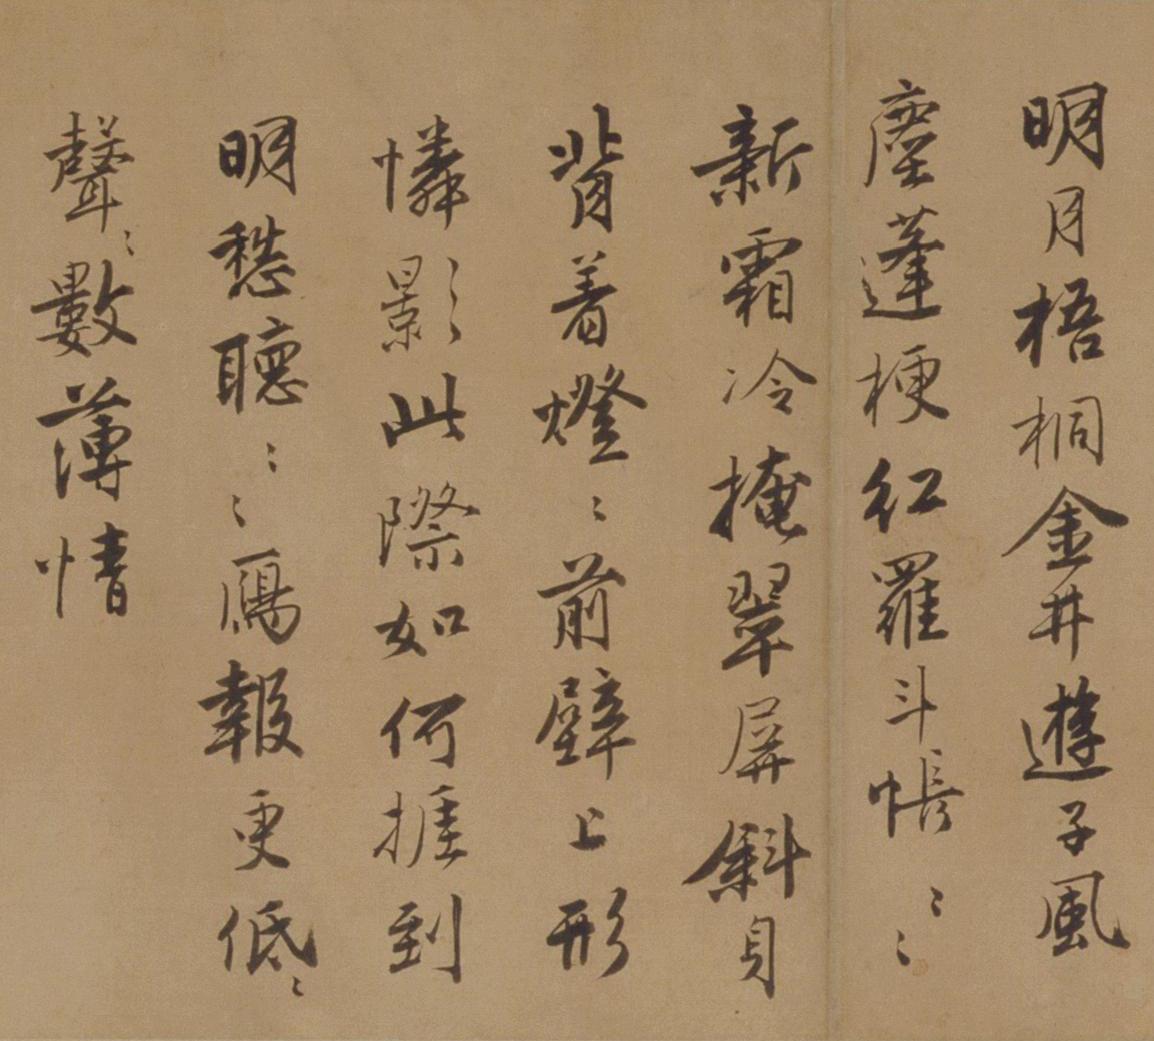 明月梧桐金井遊子風
塵蓬梗紅羅斗帳〻〻
新霜冷掩翠屏斜身
背着燈〻前壁上形
憐影此際如何捱到
明愁聽〻〻鴈報更低〻
聲〻數薄情